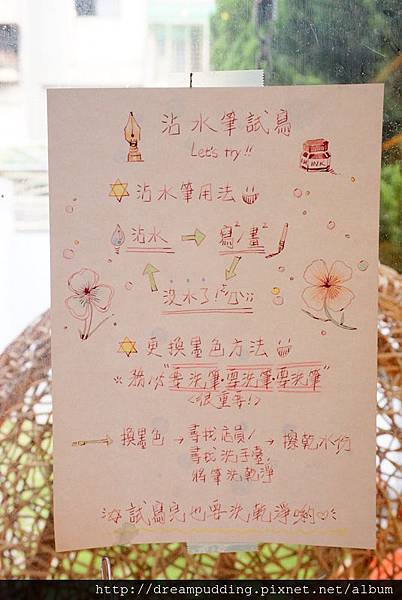 沾水筆試寫
Let's try!!
INK
沾水筆用法
沾水 → 寫/畫
沒水了!
更換墨色方法
務必"要洗筆.要洗筆.要洗筆"
<很重要!>
換墨色 → 尋找店員/ → 擦乾水份
尋找洗手臺,
將筆洗乾淨
試寫完也要洗乾淨喲
http://dreampudding.pixnet.net/album